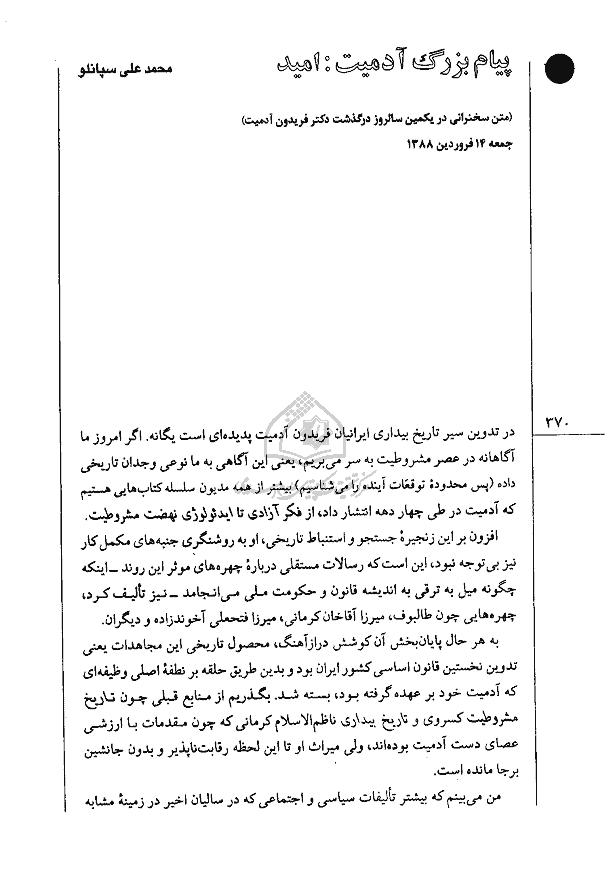 پیام بزرگ آدمیت: امید
محمد علی سپانلو
(متن سخنرانی در یکمین سالروز درگذشت دکتر فریدون آدمیت)
جمعه ۱۴ فروردین ۱۳۸۸
۳۷۰
در تدوین سیر تاریخ بیداری ایرانیان فریدون آدمیت پدیده‌ای است یگانه. اگر امروز ما
آگاهانه در عصر مشروطیت به سر می‌بریم، یعنی این آگاهی به ما نوعی وجدان تاریخی
داده (پس محدودهٔ توقعات آینده را می‌شناسیم) بیشتر از همه مدیون سلسله کتاب‌هایی هستیم
که آدمیت در طی چهار دهه انتشار داد، از فکر آزادی تا ایدئولوژی نهضت مشروطیت.
افزون بر این زنجیرهٔ جستجو و استنباط تاریخی، او به روشنگری جنبه‌های مکمل کار
نیز بی‌توجه نبود، این است که رسالات مستقلی دربارهٔ چهره‌های موثر این روند ــ اینکه
چگونه میل به ترقی به اندیشه قانون و حکومت ملی می‌انجامد ــ نیز تألیف کرد،
چهره‌هایی چون طالبوف، میرزا آقاخان کرمانی، میرزا فتحعلی آخوندزاده و دیگران.
به هر حال پایان‌بخش آن کوشش درازآهنگ، محصول تاریخی این مجاهدات یعنی
تدوین نخستین قانون اساسی کشور ایران بود و بدین طریق حلقه بر نطفهٔ اصلی وظیفه‌ای
که آدمیت خود بر عهده گرفته بود، بسته شد. بگذریم از منابع قبلی چون تاریخ
مشروطیت کسروی و تاریخ بیداری ناظم‌الاسلام کرمانی که چون مقدمات با ارزشی
عصای دست آدمیت بوده‌اند، ولی میراث او تا این لحظه رقابت‌ناپذیر و بدون جانشین
برجا مانده است.
من می‌بینم که بیشتر تألیفات سیاسی و اجتماعی که در سالیان اخیر در زمینهٔ مشابه